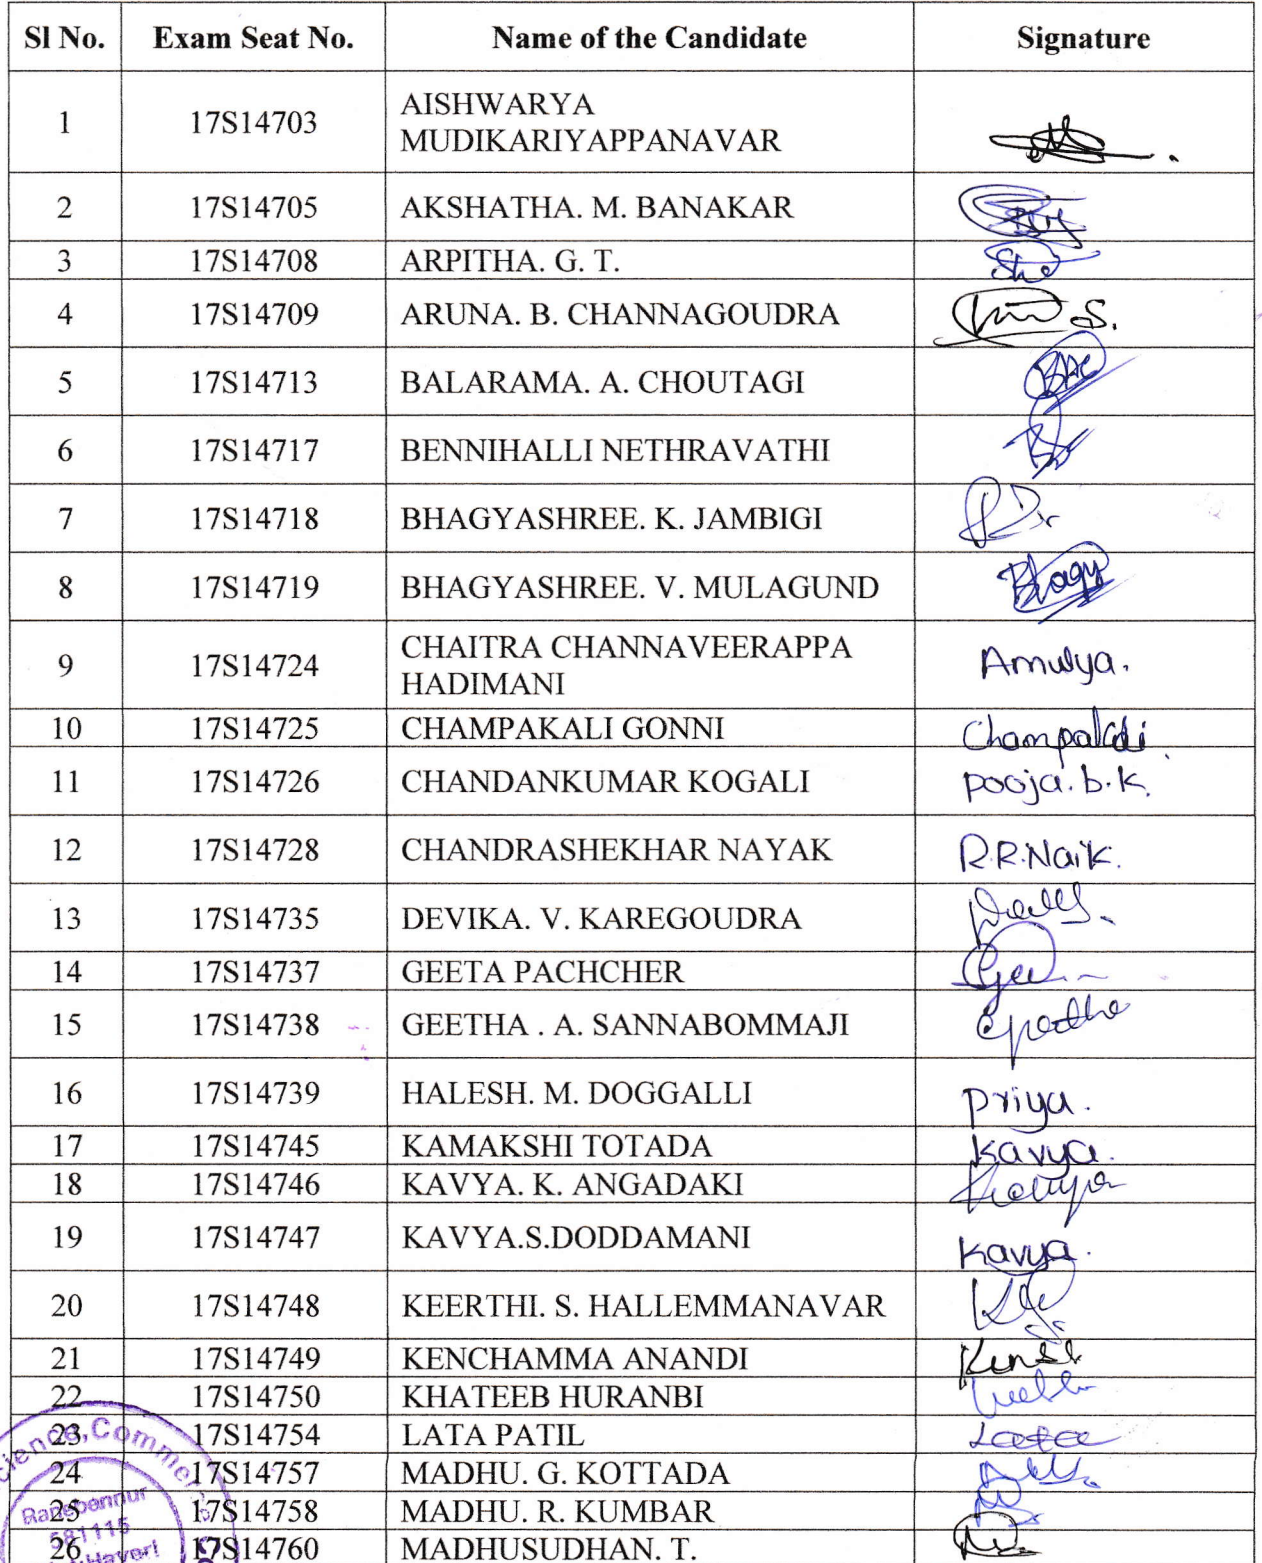 Sl No. Exam Seat No. Name of the Candidate Signature
1 17S14703 AISHWARYA
MUDIKARIYAPPANAVAR
2 17S14705 AKSHATHA. M. BANAKAR
3 17S14708 ARPITHA. G. T.
4 17S14709 ARUNA. B. CHANNAGOUDRA
5 17S14713 BALARAMA. A. CHOUTAGI
6 17S14717 BENNIHALLI NETHRAVATHI
7 17S14718 BHAGYASHREE. K. JAMBIGI
8 17S14719 BHAGYASHREE. V. MULAGUND Bhagy
9 17S14724 CHAITRA CHANNAVEERAPPA
HADIMANI Amulya.
10 17S14725 CHAMPAKALI GONNI
11 17S14726 CHANDANKUMAR KOGALI pooja.b.k.
12 17S14728 CHANDRASHEKHAR NAYAK R.R.Naik.
13 17S14735 DEVIKA. V. KAREGOUDRA
14 17S14737 GEETA PACHCHER
15 17S14738 GEETHA . A. SANNABOMMAJI Geetha
16 17S14739 HALESH. M. DOGGALLI Priya.
17 17S14745 KAMAKSHI TOTADA Kavya.
18 17S14746 KAVYA. K. ANGADAKI
19 17S14747 KAVYA.S.DODDAMANI Kavya.
20 17S14748 KEERTHI. S. HALLEMMANAVAR
21 17S14749 KENCHAMMA ANANDI
22 17S14750 KHATEEB HURANBI
23 17S14754 LATA PATIL Lata
24 17S14757 MADHU. G. KOTTADA
25 17S14758 MADHU. R. KUMBAR
26 17S14760 MADHUSUDHAN. T.
Ranebennur
581115